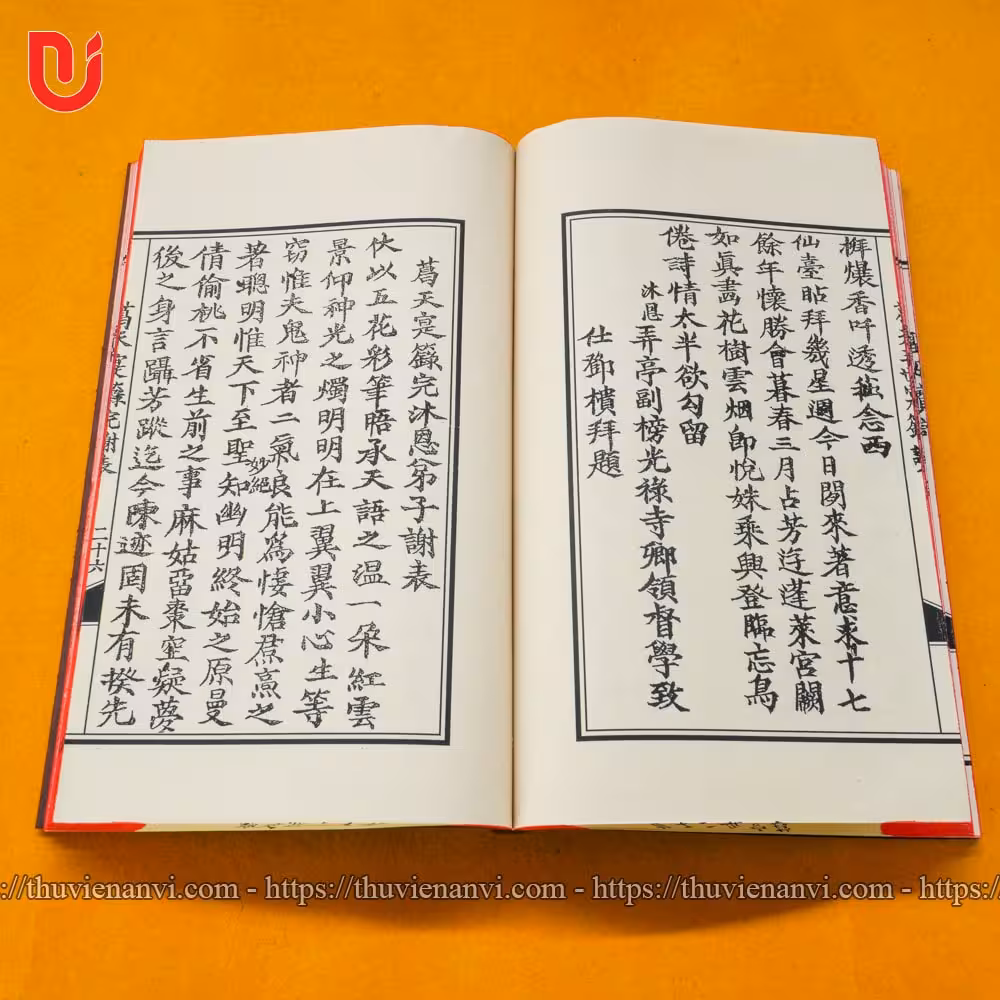 摒爐香吁透碧念西
仙臺跕拜幾星週今日閱來著意求十七
餘年懷勝會暮春三月占芳迂蓬萊宮闕
如真畵花樹雲烟即悅姝乘興登臨忘烏
倦詩情太半欲勾留
沐恩弄亭副榜光祿寺卿領督學致
仕鄧樻拜題
葛天寔籙完沐恩弟子謝表
伏以五花彩筆晤承天語之溫一朵紅雲
景仰神光之燭明明在上翼翼小心生等
窃惟夫鬼神者二氣良能為悽愴焄蒿之
妙絕
著聰明惟天下至聖知幽明終始之原曼
倩偷桃不省生前之事麻姑留棗空疑夢
後之身言躡芳蹤迄今陳迹固未有揆先
葛天寔籙完謝表
二十六
https://thuvienanvi.com - https://thuvienanvi.com - https://thuvienanvi.com - https://thuvienanvi.com